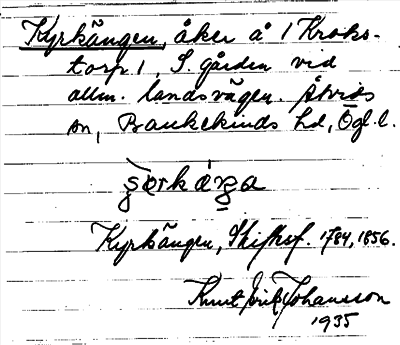 Kyrkängen, åker å 1 Kroks-
torp 1, S. gården vid
allm. landsvägen. Åtvids
sn, Bankekinds hd, Ögl. l.
Kyrkängen, Skifksf. 1784, 1856.
Knut Erik Johansson
1935